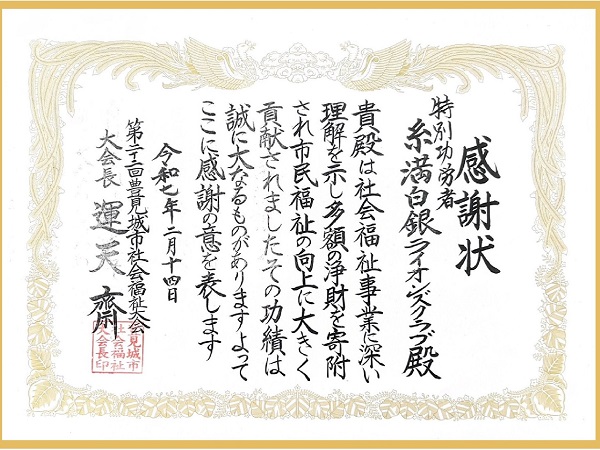 感謝状
特別功労者
糸満白銀ライオンズクラブ殿
貴殿は社会福祉事業に深い
理解を示し多額の浄財を寄附
され市民福祉の向上に大きく
貢献されましたその功績は
誠に大なるものがありますよって
ここに感謝の意を表します
令和七年二月十四日
第二十二回豊見城市社会福祉大会
大会長 運天 齋
豊見城市
社会福祉
大会長印